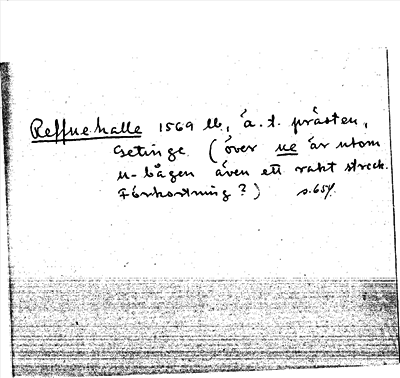 Reffuehalle 1569 lb, å.t. prästen,
Getinge (över ue är utom
u-bågen även ett rakt streck.
Förkortning?) s.654.